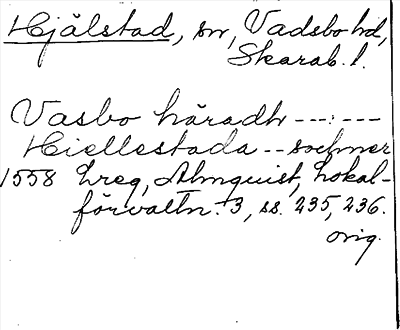 Hjälstad, sn, Vadsbo hd,
Skarab. l.
Vasbo häradh ---:---
Hiellestada -- sochner
1558 Lreg, Almquist, Lokal-
förvaltn. 3, ss. 235, 236.
orig.